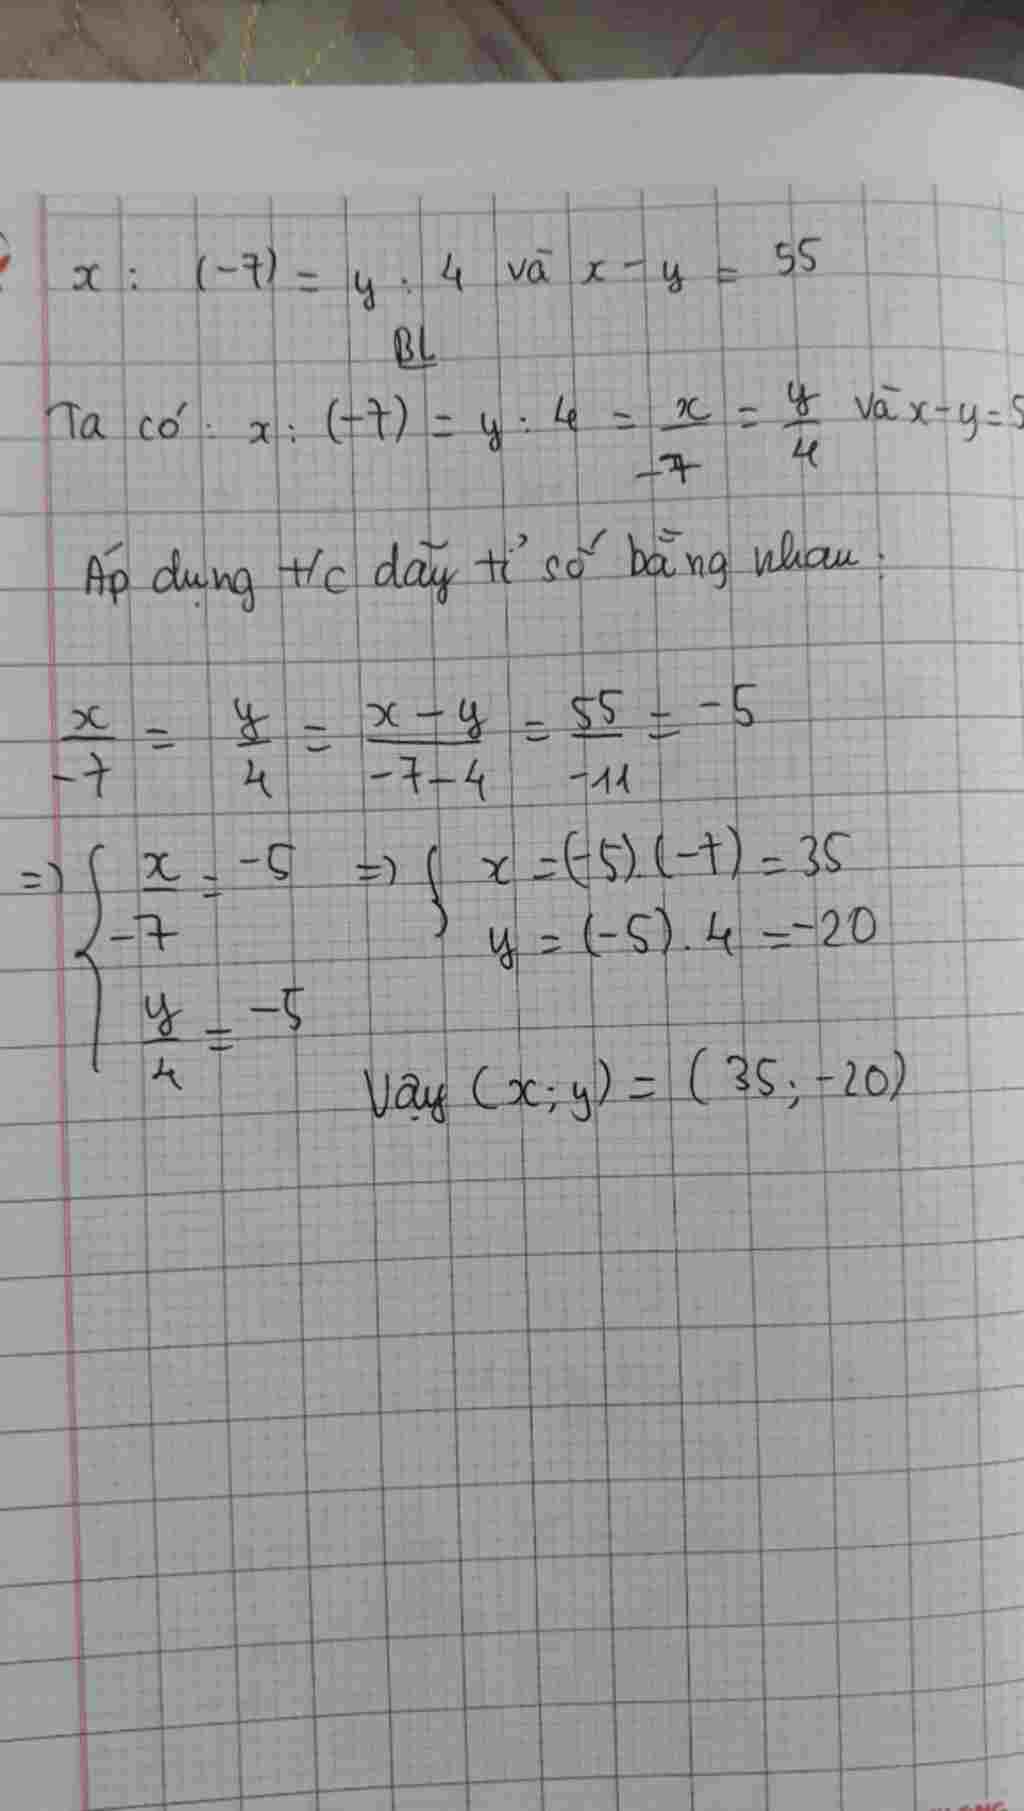 x : (-7) = y : 4 và x - y = 55
BL
Ta có : x : (-7) = y : 4 = x/-7 = y/4 và x - y = 5
Áp dụng t/c dãy tỉ số bằng nhau :
x/-7 = y/4 = x - y/-7 - 4 = 55/-11 = -5
=> { x/-7 = -5 => { x = (-5) (-7) = 35
y = (-5) . 4 = -20
y/4 = -5
Vậy (x; y) = (35; -20)